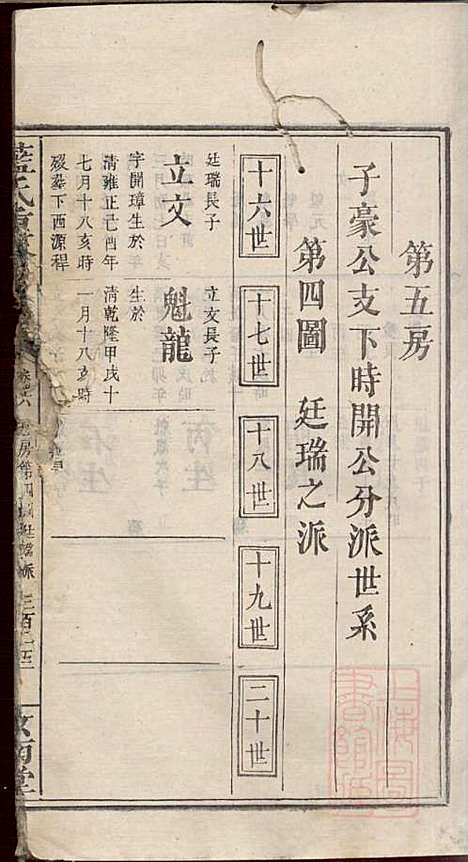 第五房
子豪公支下時開公分派世系
第四圖 廷瑞之派
十六世 十七世 十八世 十九世 二十世
廷瑞長子
立文
字開璋生於
清雍正己酉年
七月十八亥時
歿葬下西源程
立文長子
魁龍
生於
清乾隆甲戌十
一月十八亥時
房第四
派